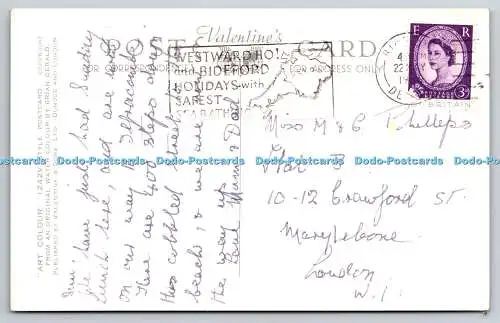 Valentine's
POST CARD
FOR CORRESPONDENCE
FOR ADDRESS ONLY
WESTWARD HO!
and BIDEFORD
HOLIDAYS with
SAFEST
SEA BATHING
E R
3D
4-
22
19
DEVON
"ART COLOUR" POSTCARD. COPYRIGHT
FROM AN ORIGINAL WATER COLOUR BY BRIAN GERALD.
PUBLISHED BY VALENTINE & SONS LTD., DUNDEE AND LONDON
We have just had Sunday
lunch here, and are now
on our way to Ilfracombe
There are 400 steps down
this cobbled street to
beach, & we are
the way up.
Love Mummy & Dad
Miss M & C Phillips
Flat B.
10-12 Crawford St.
Marylebone
London
W.1.
Dodo-Postcards Dodo-Postcards Dodo-Postcards Dodo-Postcards Dodo-Postcards Dodo-Postcards